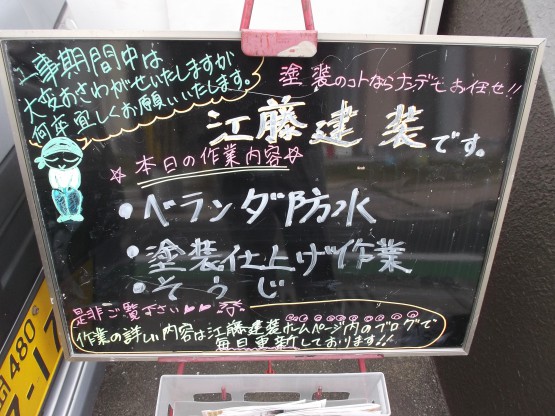 工事期間中は
大変おさわがせいたしますが
何卒宜しくお願いいたします。
塗装のコトならナンデモお任せ!!
江藤建装です。
☆本日の作業内容☆
・ベランダ防水
・塗装仕上げ作業
・そうじ
是非ご覧下さい♥♥
作業の詳しい内容は江藤建装ホームページ内のブログで
毎日更新しております!!
480
7-17